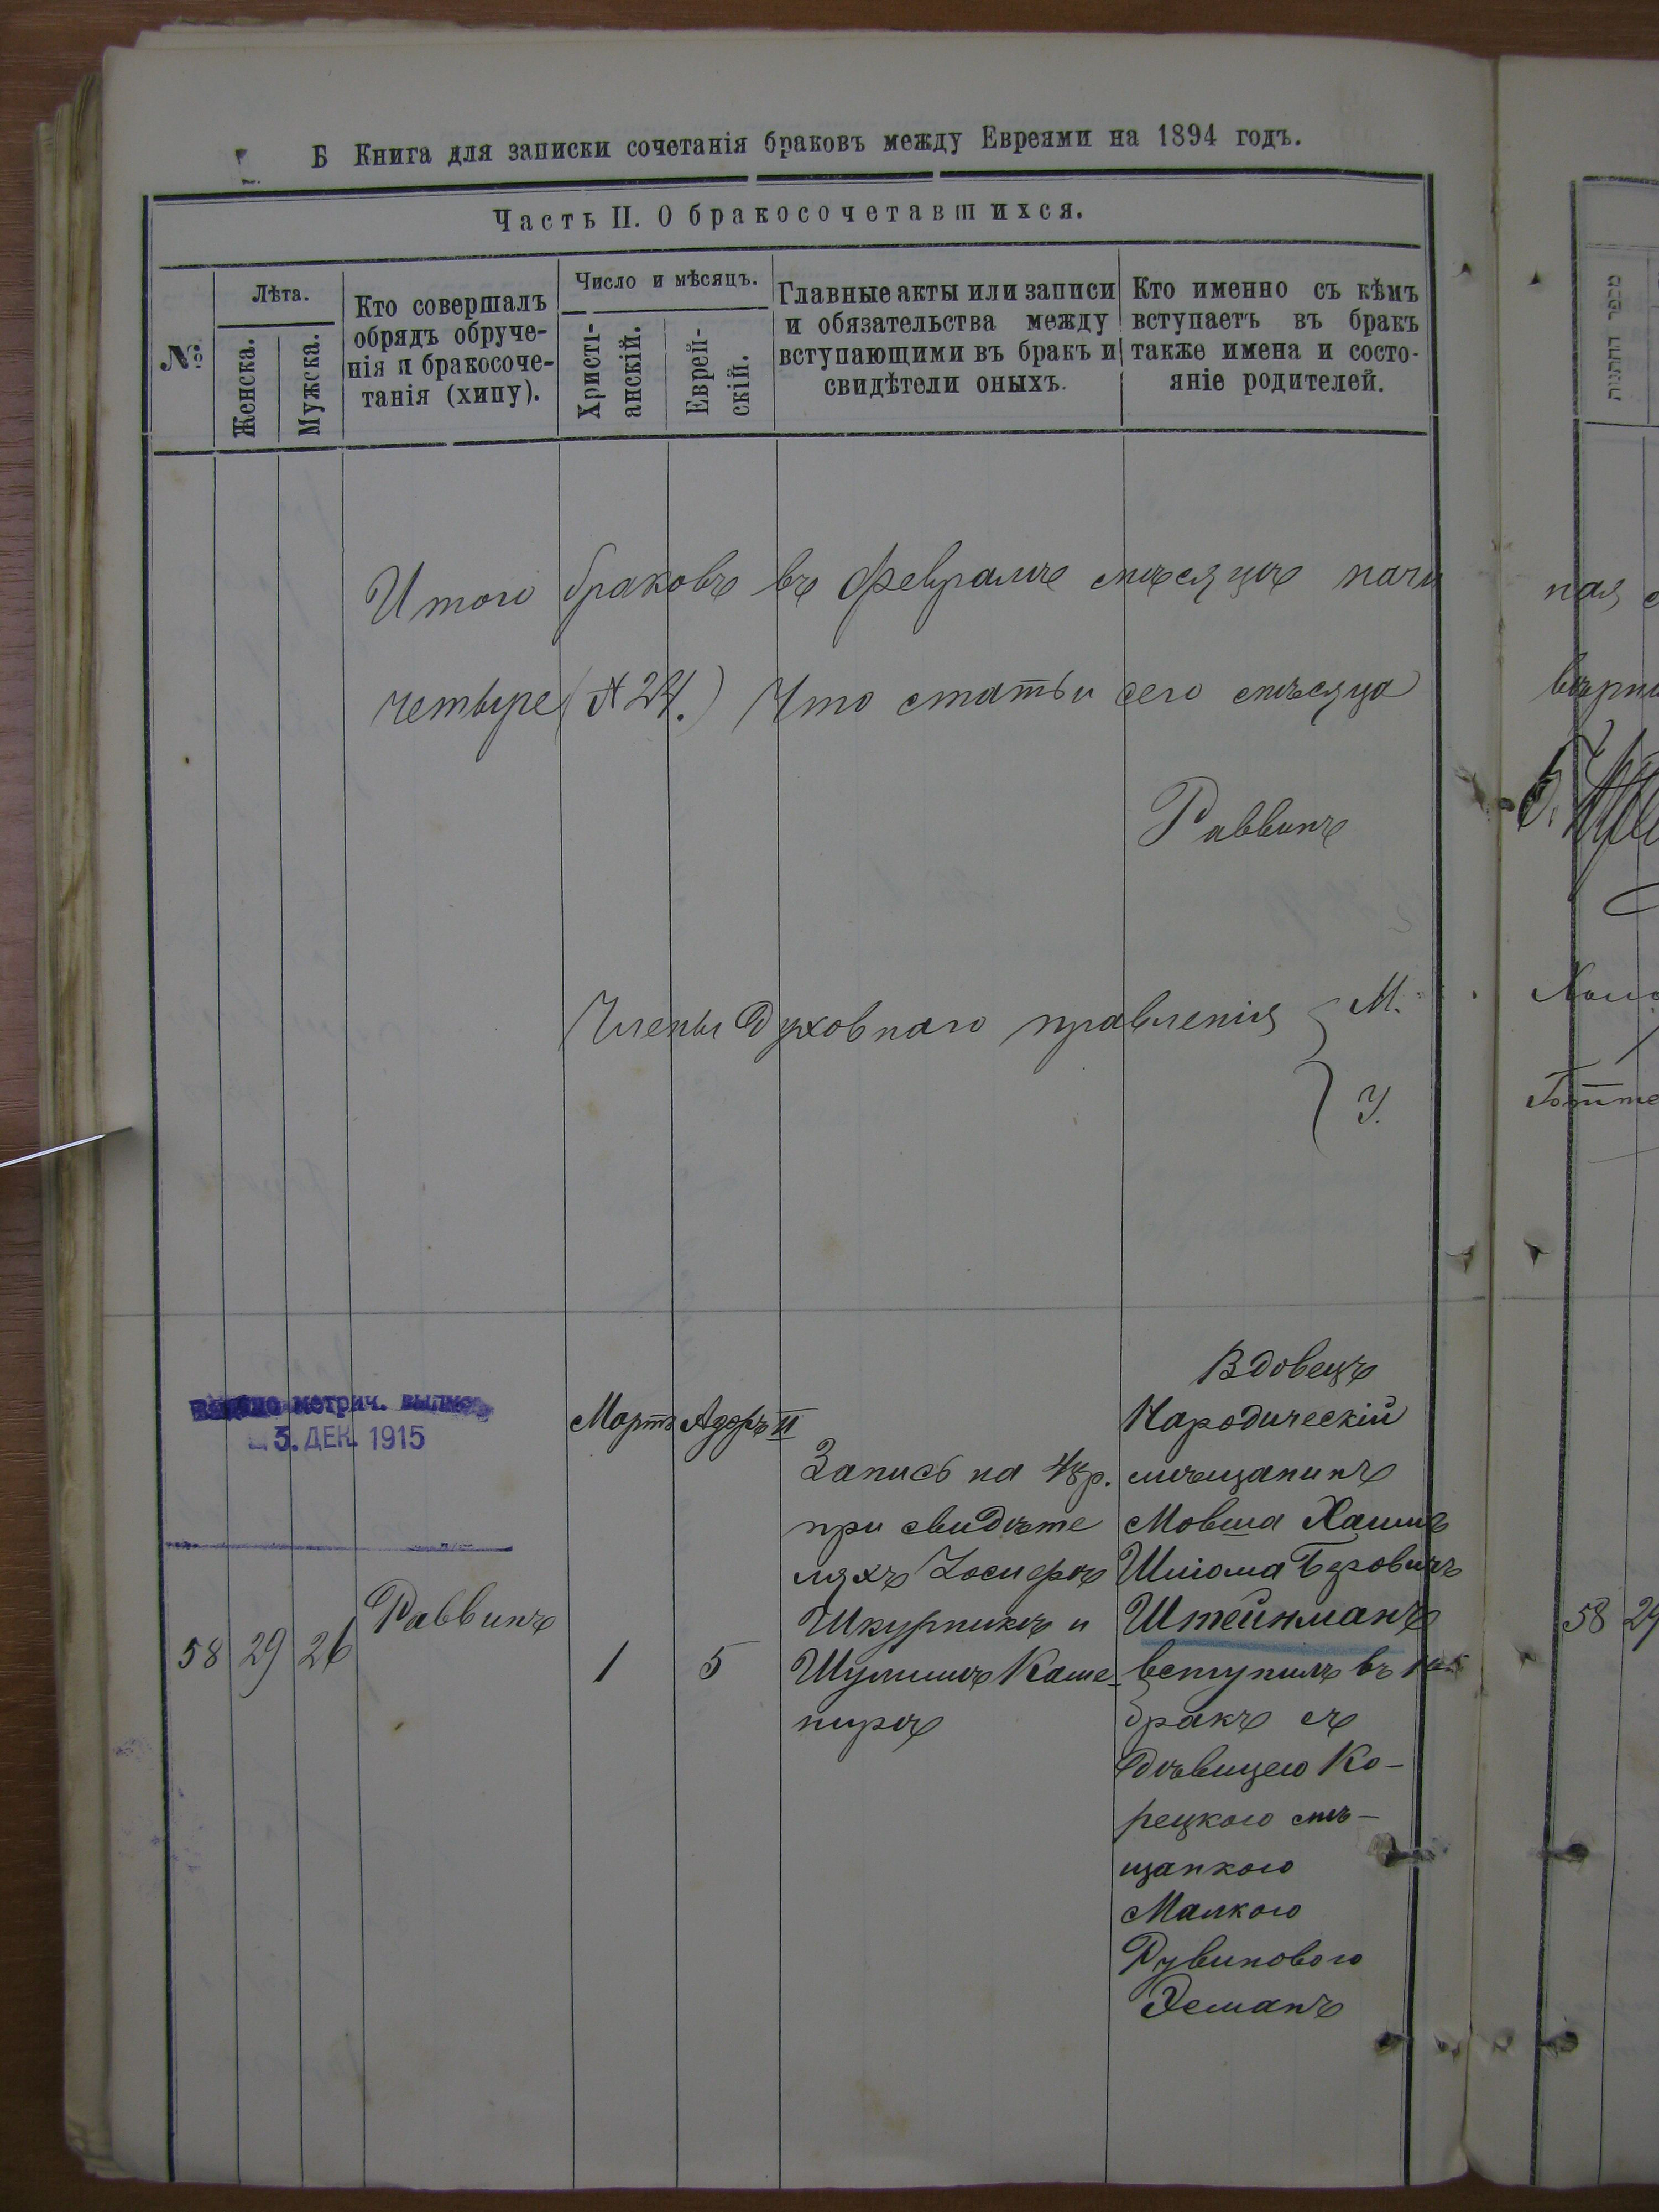 Б Книга для записки сочетанія браковъ между Евреями на 1894 годъ.
Часть II. О бракосочетавшихся.
№
Лѣта.
Женска.
Мужска.
Кто совершалъ
обрядъ обруче-
нія и бракосоче-
танія (хипу).
Число и мѣсяцъ.
Христі-
анскій.
Еврей-
скій.
Главные акты или записи
и обязательства между
вступающими въ бракъ и
свидѣтели оныхъ.
Кто именно съ кѣмъ
вступаетъ въ бракъ
также имена и состо-
яніе родителей.
Итого браковъ въ Февралѣ мѣсяцѣ начи
четыре (№ 24.) Что статьи сего мѣсяца
Раввинъ
Члены Духовнаго правленія
М.
У.
метрич.
3. ДЕК. 1915
58 29 26
Раввинъ
Мартъ
1
Адаръ II
5
Запись на 48 р.
при свидѣте
ляхъ Іосифѣ
Шкурникъ и
Шулимѣ Каше-
пирѣ
Вдовецъ
Народическій
мѣщанинъ
Мовша Хаимъ
Шліома Беровичъ
Штейнманъ
вступилъ въ
бракъ съ
дѣвицею Ко-
рецкою мѣ-
щанкою
Малкою
Рувиновою
Земанъ
ная
вѣрны
58 29